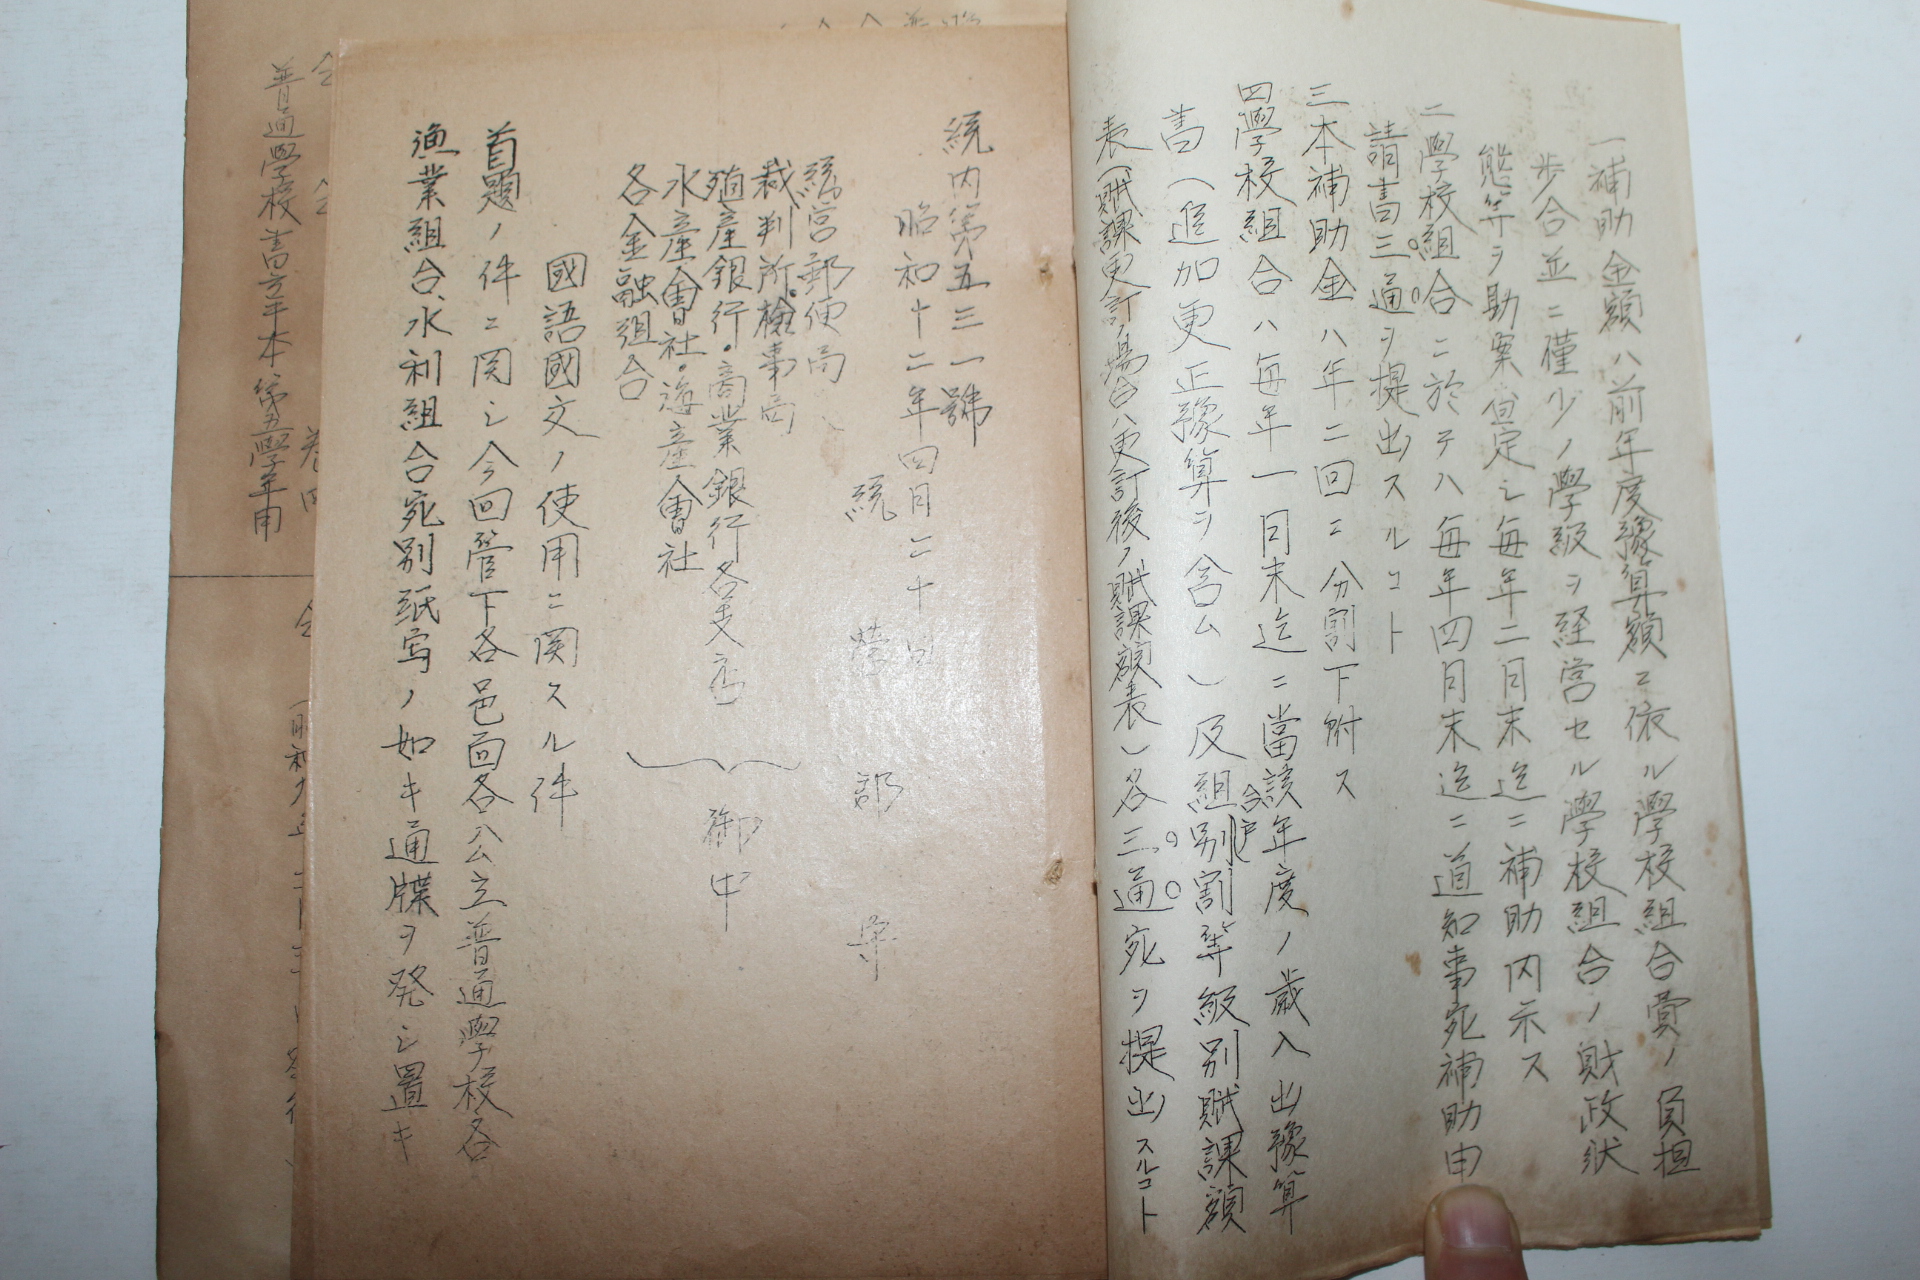 一補助金額ハ前年度豫算額ニ依ル學校組合費ノ負担
歩合並ニ僅少ノ學級ヲ経営セル學校組合ノ財政状
態等ヲ助案査定シ毎年二月末迄ニ補助内示ス
二學校組合ニ於テハ毎年四月末迄ニ道知事宛補助申
請書三通ヲ提出スルコト
三本補助金ハ年二回ニ分割下附ス
四學校組合ハ毎年一月末迄ニ當該年度ノ歳入出豫算
書(追加更正豫算ヲ含ム)及組合戸別割等級別賦課額
表(賦課更訂ノ場合ハ更訂後ノ賦課額表)各三通宛ヲ提出スルコト
統内第五三一號
昭和十二年四月二十日
統營郡守
統營郵便局
裁判所・檢事局
殖産銀行・商業銀行各支店
水産會社・海産會社
各金融組合
御中
國語國文ノ使用ニ関スル件
首題ノ件ニ関シ今回管下各邑面各公立普通學校各
漁業組合水利組合宛別紙写ノ如キ通牒ヲ発シ置キ
普通學校書方手本第五學年用